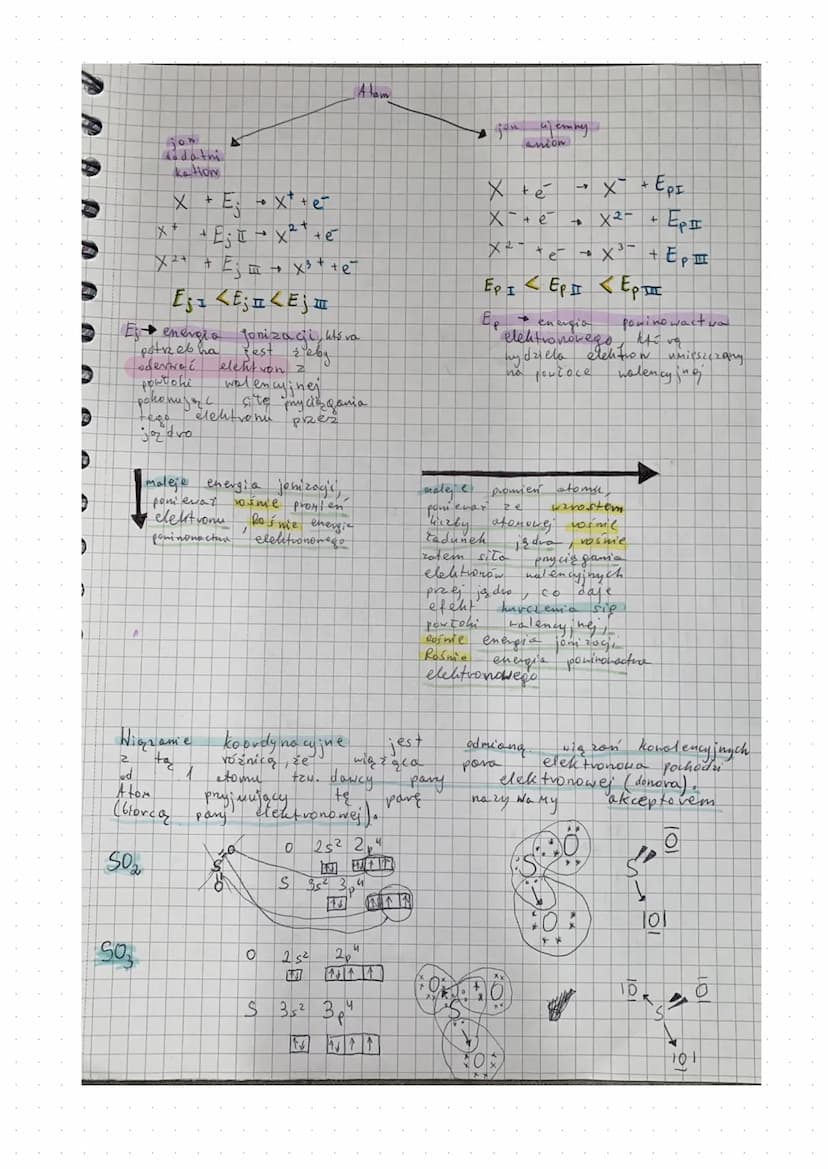 Atom
jon
dodatni
kation
X + Ej → X⁺ + e⁻
X⁺ + Ej II → X²⁺ + e⁻
X²⁺ + Ej III → X³⁺ + e⁻
Ej I < Ej II < Ej III
Ej → energia jonizacji, która
potrzebna jest żeby
oderwać elektron z
powłoki walencyjnej
pokonując siłę przyciągania
tego elektronu przez
jądro
jon ujemny
anion
X + e⁻ → X⁻ + Ep I
X⁻ + e⁻ → X²⁻ + Ep II
X²⁻ + e⁻ → X³⁻ + Ep III
Ep I < Ep II < Ep III
Ep → energia powinowactwa
elektronowego, którą
wydziela elektron umieszczany
na powłoce walencyjnej
maleje energia jonizacji,
ponieważ rośnie promień
elektronu, Rośnie energia
powinowactwa elektronowego
maleje promień atomu,
ponieważ ze wzrostem
liczby atomowej rośnie
ładunek jądra, rośnie
zatem siła przyciągania
elektronów walencyjnych
przej jądro, co daje
efekt kurczenia się
powłoki walencyjnej,
rośnie energia jonizacji
Rośnie energia powinowactwa
elektronowego
Wiązanie koordynacyjne jest odmianą wiązań kowalencyjnych
z tą różnicą, że wiążąca para elektronowa pochodzi
od 1 atomu tzw. dawcy pary elektronowej (donora).
Atom przyjmujący tę parę nazywamy akceptorem
(biorcą pary elektronowej).
SO₂
O 2s² 2p⁴
S 3s² 3p⁴
O S O
S O O
S O O
SO₃
O 2s² 2p⁴
S 3s² 3p⁴
O O S O
O O S O